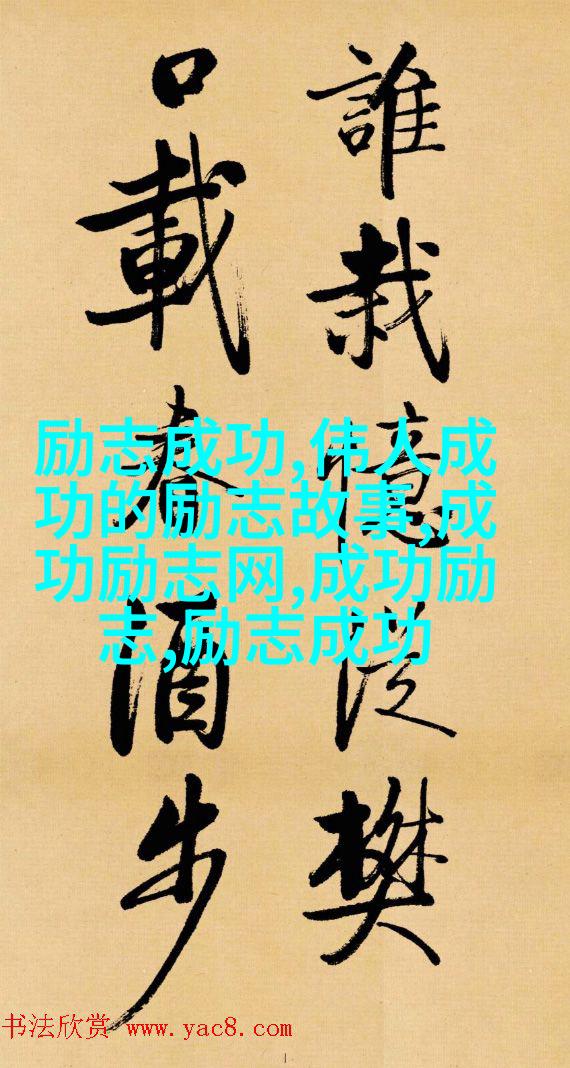 誰栽憶從樊
口載春酒步
励志成功,伟人成
功的励志故事,成
功励志网,成功励
志,励志成功
书法欣赏 www.yac8.com